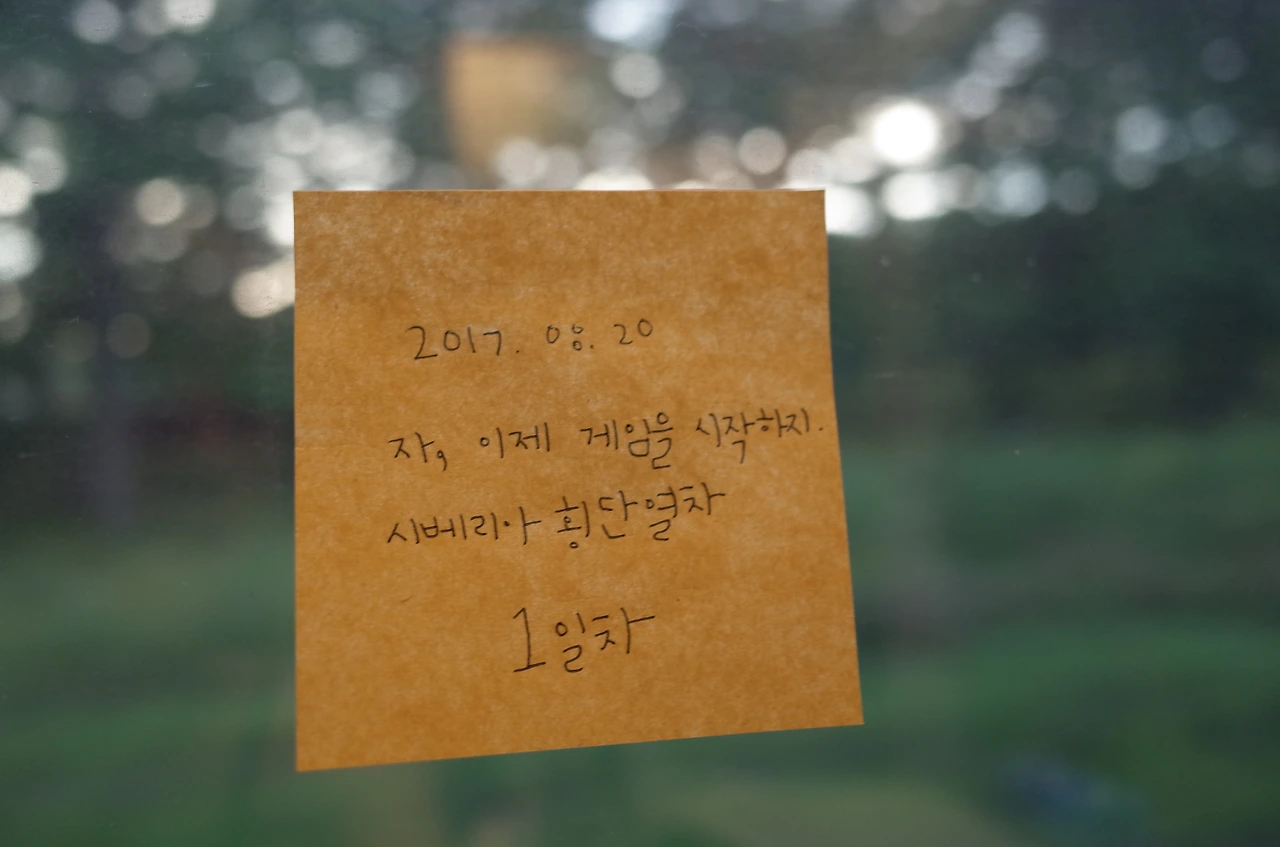 2017. 08. 20
자, 이제 게임을 시작하지.
시베리아 횡단열차
1일차